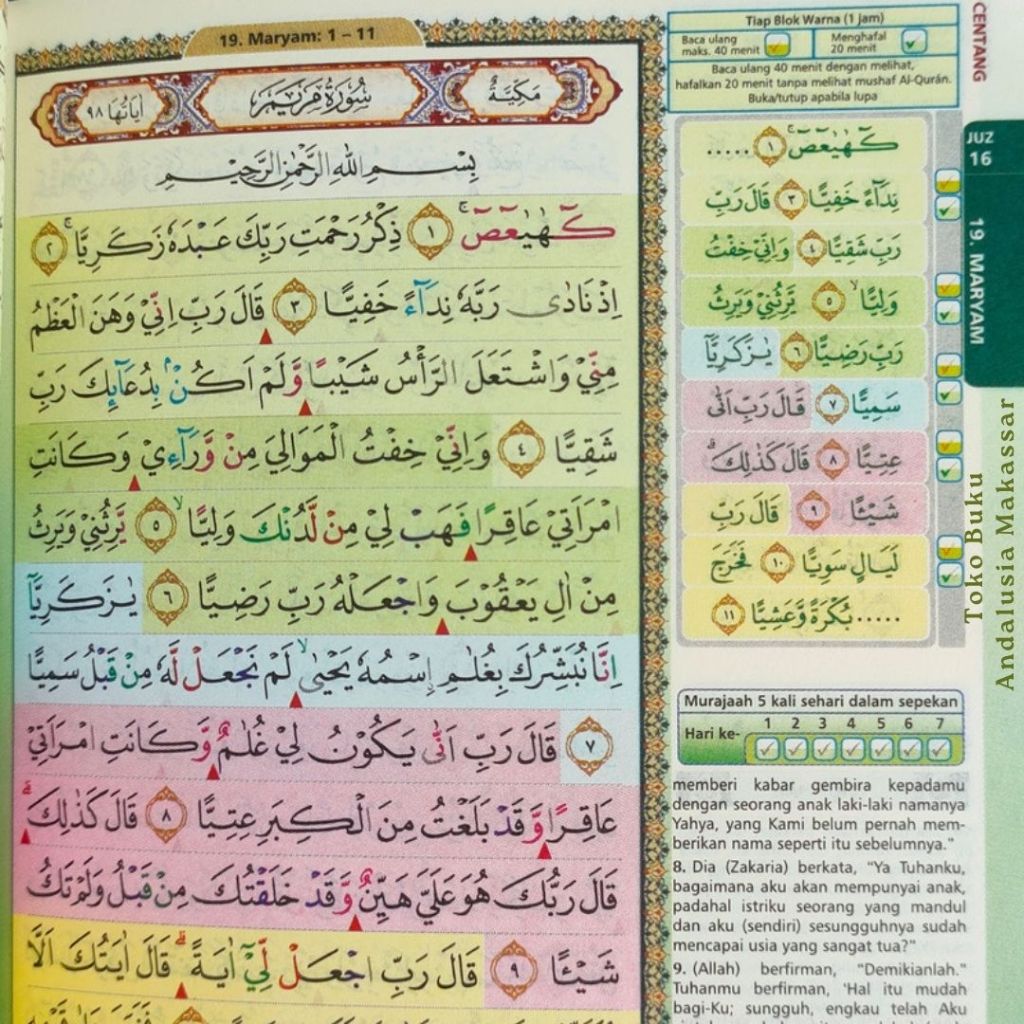 19. Maryam: 1 – 11
اٰيَاتُهَا ٩٨
سُوْرَةُ مَرْيَمَ
مَكِّيَّةٌ
بِسْمِ اللّٰهِ الرَّحْمٰنِ الرَّحِيْمِ
كۤهٰيٰعۤصۤ ۚ ١ ذِكْرُ رَحْمَتِ رَبِّكَ عَبْدَهٗ زَكَرِيَّا ۚ ٢
اِذْ نَادٰى رَبَّهٗ نِدَاۤءً خَفِيًّا ٣ قَالَ رَبِّ اِنِّيْ وَهَنَ الْعَظْمُ
مِنِّيْ وَاشْتَعَلَ الرَّأْسُ شَيْبًا وَّلَمْ اَكُنْۢ بِدُعَاۤىِٕكَ رَبِّ
شَقِيًّا ٤ وَاِنِّيْ خِفْتُ الْمَوَالِيَ مِنْ وَّرَاۤءِيْ وَكَانَتِ
امْرَاَتِيْ عَاقِرًا فَهَبْ لِيْ مِنْ لَّدُنْكَ وَلِيًّا ۙ ٥ يَّرِثُنِيْ وَيَرِثُ
مِنْ اٰلِ يَعْقُوْبَ وَاجْعَلْهُ رَبِّ رَضِيًّا ٦ يٰزَكَرِيَّآ
اِنَّا نُبَشِّرُكَ بِغُلٰمِ ࣙاسْمُهٗ يَحْيٰىۙ لَمْ نَجْعَلْ لَّهٗ مِنْ قَبْلُ سَمِيًّا
٧ قَالَ رَبِّ اَنّٰى يَكُوْنُ لِيْ غُلٰمٌ وَّكَانَتِ امْرَاَتِيْ
عَاقِرًا وَّقَدْ بَلَغْتُ مِنَ الْكِبَرِ عِتِيًّا ٨ قَالَ كَذٰلِكَۗ
قَالَ رَبُّكَ هُوَ عَلَيَّ هَيِّنٌ وَّقَدْ خَلَقْتُكَ مِنْ قَبْلُ وَلَمْ تَكُ
شَيْـًٔا ٩ قَالَ رَبِّ اجْعَلْ لِّيْٓ اٰيَةً ۗ قَالَ اٰيَتُكَ اَلَّا
Tiap Blok Warna (1 jam)
Baca ulang
maks. 40 menit
Menghafal
20 menit
Baca ulang 40 menit dengan melihat,
hafalkan 20 menit tanpa melihat mushaf Al-Qurán.
Buka/tutup apabila lupa
كۤهٰيٰعۤصۤ ۚ ١ .....
نِدَاۤءً خَفِيًّا ٣ قَالَ رَبِّ
رَبِّ شَقِيًّا ٤ وَاِنِّيْ خِفْتُ
وَلِيًّا ۙ ٥ يَّرِثُنِيْ وَيَرِثُ
رَبِّ رَضِيًّا ٦ يٰزَكَرِيَّآ
سَمِيًّا ٧ قَالَ رَبِّ اَنّٰى
عِتِيًّا ٨ قَالَ كَذٰلِكَۗ
شَيْـًٔا ٩ قَالَ رَبِّ
لَيَالٍ سَوِيًّا ١٠ فَخَرَجَ
..... بُكْرَةً وَّعَشِيًّا ١١
Murajaah 5 kali sehari dalam sepekan
Hari ke- 1 2 3 4 5 6 7
memberi kabar gembira kepadamu
dengan seorang anak laki-laki namanya
Yahya, yang Kami belum pernah mem-
berikan nama seperti itu sebelumnya."
8. Dia (Zakaria) berkata, "Ya Tuhanku,
bagaimana aku akan mempunyai anak,
padahal istriku seorang yang mandul
dan aku (sendiri) sesungguhnya sudah
mencapai usia yang sangat tua?"
9. (Allah) berfirman, "Demikianlah."
Tuhanmu berfirman, 'Hal itu mudah
bagi-Ku; sungguh, engkau telah Aku
CENTANG
JUZ
16
19. MARYAM
Toko Buku
Andalusia Makassar